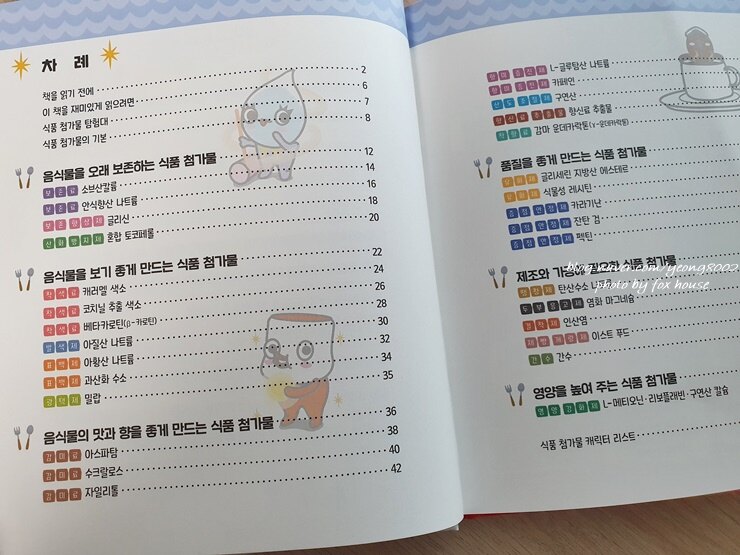 차 례
책을 읽기 전에 2
이 책을 재미있게 읽으려면 6
식품 첨가물 탐험대 7
식품 첨가물의 기본 8
음식물을 오래 보존하는 식품 첨가물 12
보존료 소브산칼륨 14
보존료 안식향산 나트륨 16
보존향상제 글리신 18
산화방지제 혼합 토코페롤 20
음식물을 보기 좋게 만드는 식품 첨가물 22
착색료 캐러멜 색소 24
착색료 코치닐 추출 색소 26
착색료 베타카로틴(β-카로틴) 28
발색제 아질산 나트륨 30
표백제 아황산 나트륨 32
표백제 과산화 수소 34
광택제 밀랍 35
음식물의 맛과 향을 좋게 만드는 식품 첨가물 36
감미료 아스파탐 38
감미료 수크랄로스 40
감미료 자일리톨 42
향미증진제 L-글루탐산 나트륨
향미증진제 카페인
산도조절제 구연산
향신료추출물 향신료 추출물
착향료 감마 운데카락톤(γ-운데카락톤)
품질을 좋게 만드는 식품 첨가물
유화제 글리세린 지방산 에스테르
유화제 식물성 레시틴
증점안정제 카라기난
증점안정제 잔탄 검
증점안정제 펙틴
제조와 가공에 필요한 식품 첨가물
팽창제 탄산수소
두부응고제 염화 마그네슘
결착제 인산염
제빵개량제 이스트 푸드
간수 간수
영양을 높여 주는 식품 첨가물
영양강화제 L-메티오닌·리보플래빈·구연산 칼슘
식품 첨가물 캐릭터 리스트
blog.naver.com/yeong8002
photo by fox house